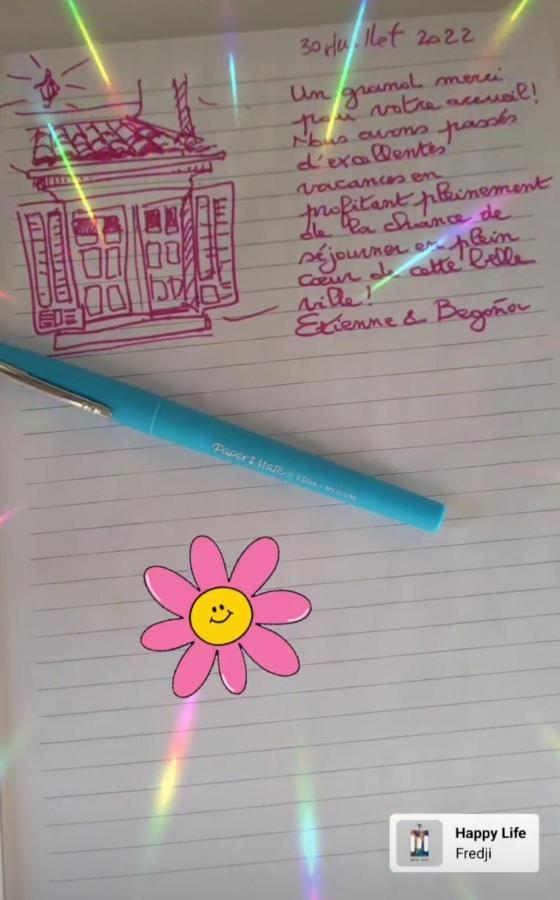 30 Juillet 2022
Un grand merci
pour votre accueil!
Nous avons passés
d'excellentes
vacances en
profitant pleinement
de la chance de
séjourner en plein
cœur de cette belle
ville!
Etienne & Begoña
Paper Mate FLAIR MEDIUM
Happy Life
Fredji